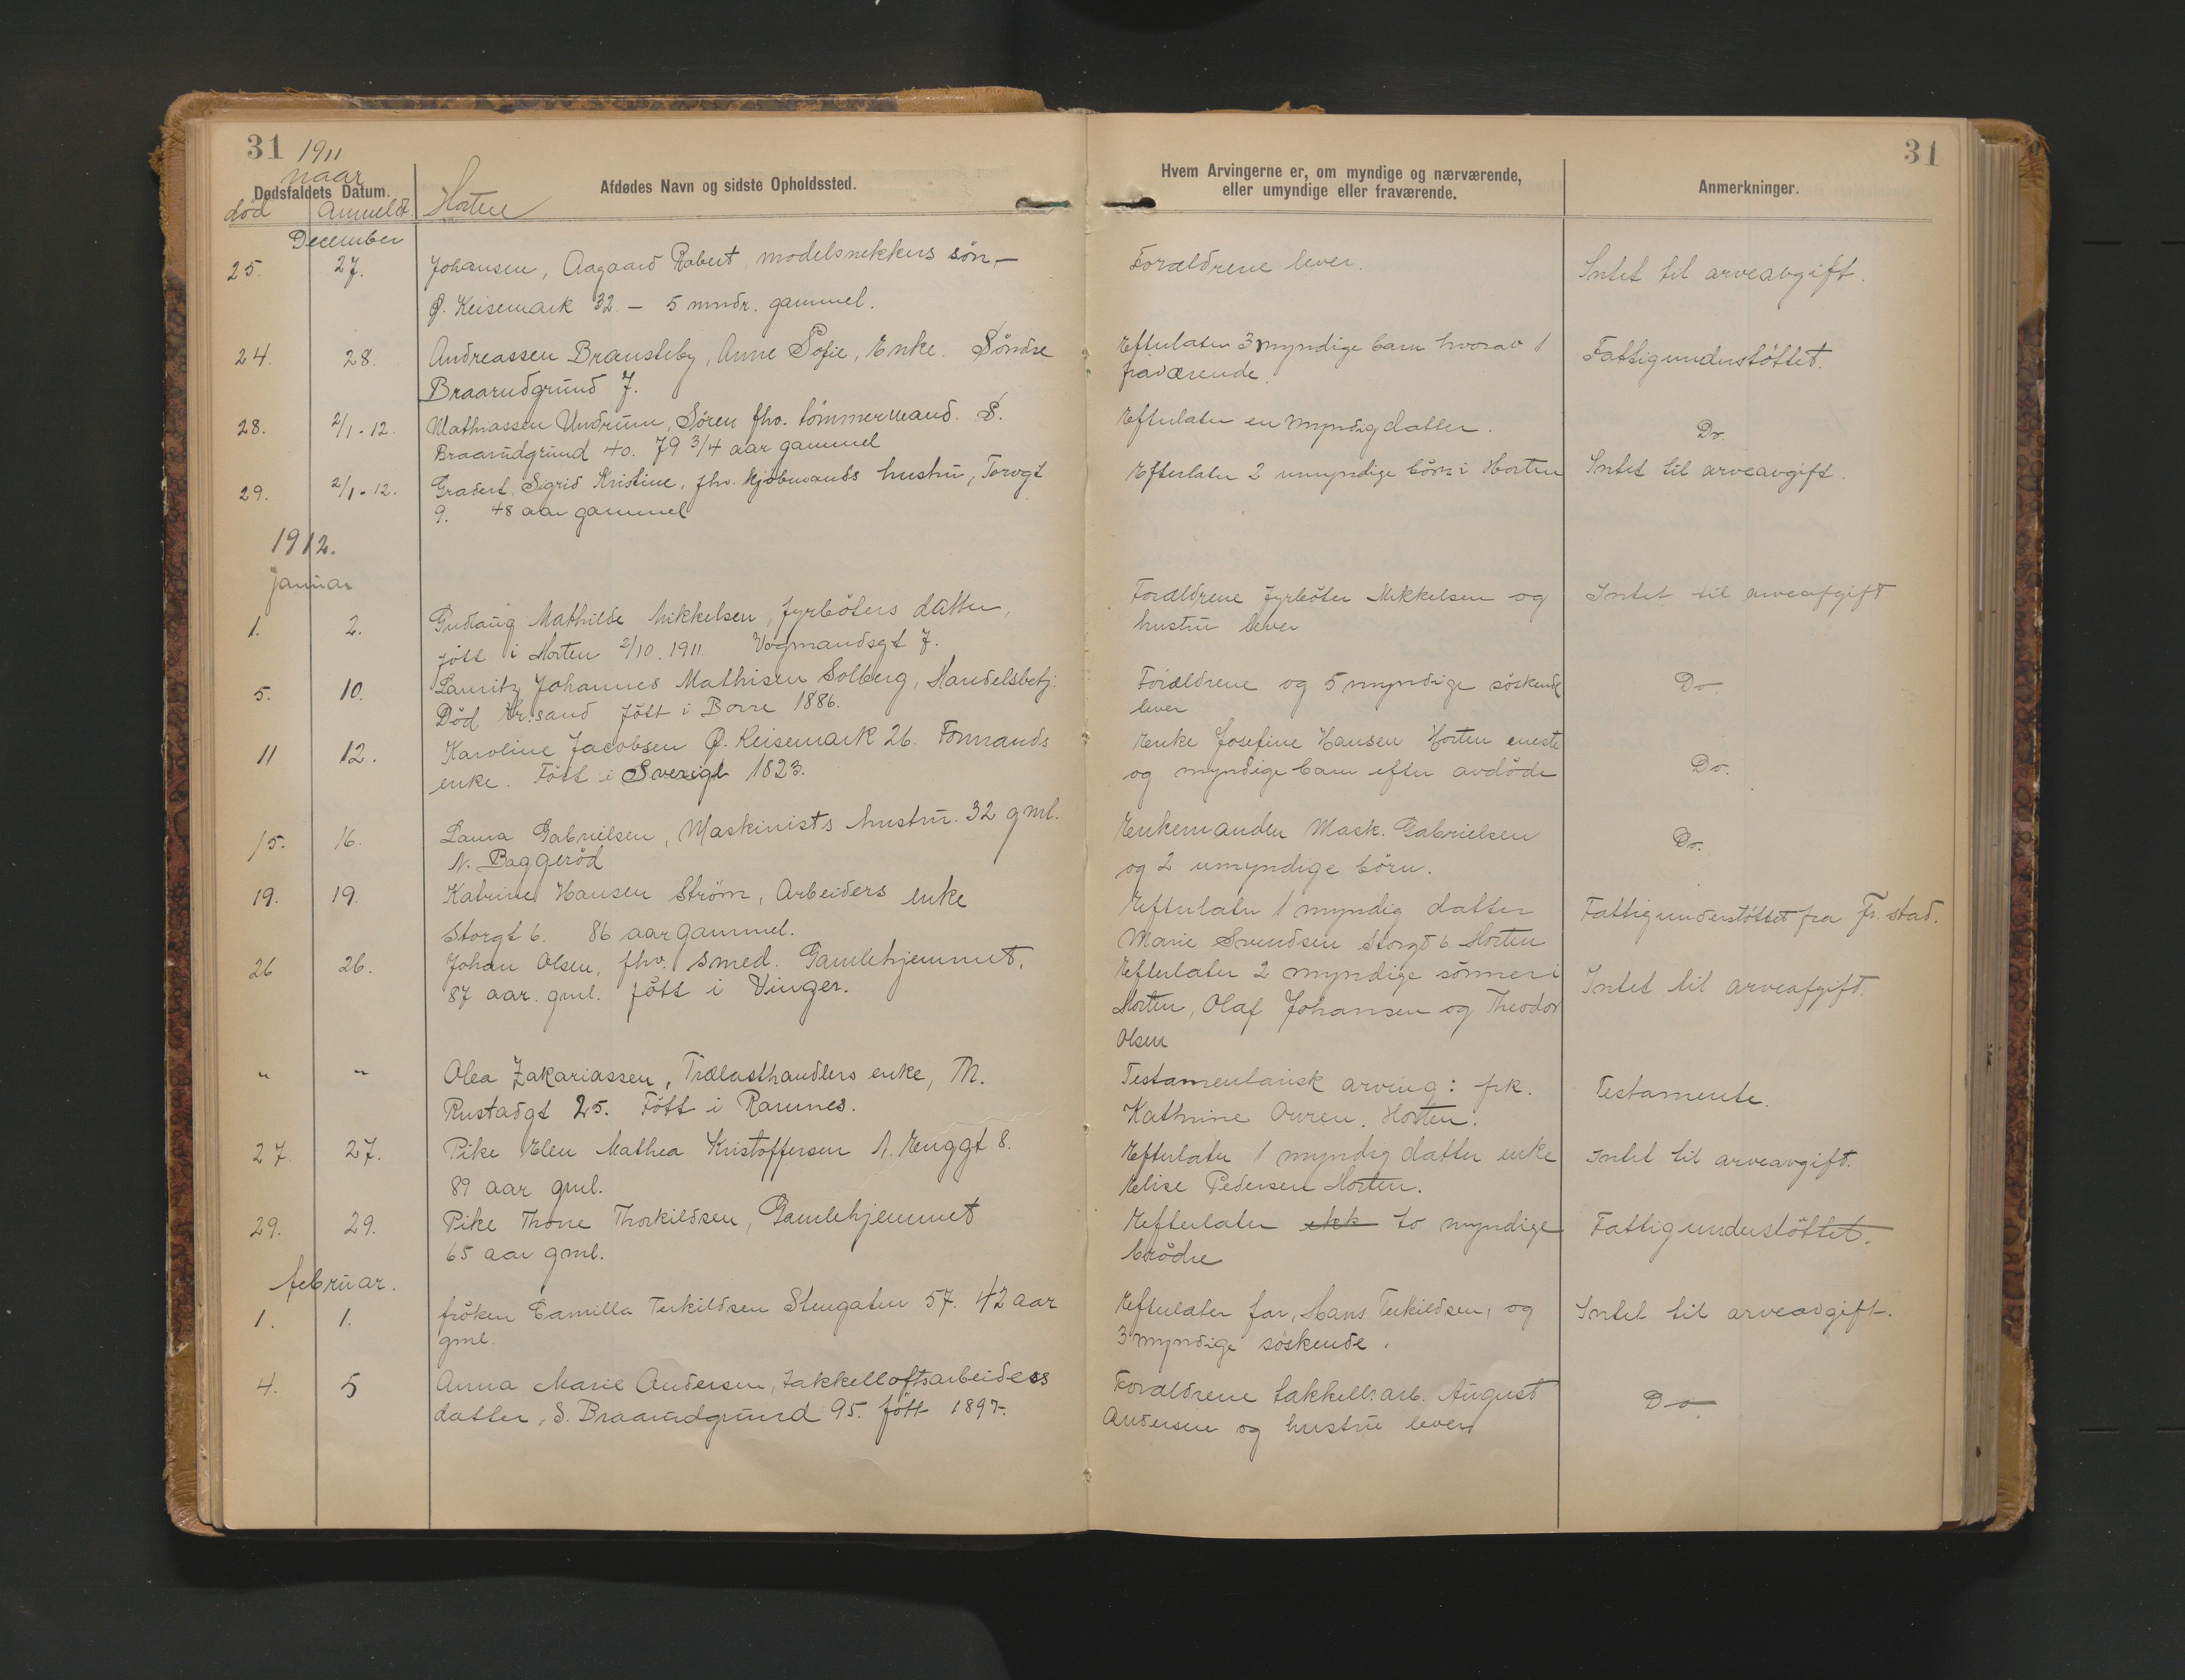 31 1911
naar
Dødsfaldets Datum.
død anmeldt
Afdødes Navn og sidste Opholdssted.
Horten
Hvem Arvingerne er, om myndige og nærværende,
eller umyndige eller fraværende.
Anmerkninger.
31
December
25. 27. Johansen, Aagaard Robert modelsnekkers søn, –
Ø. Keisemark 32 – 5 mndr. gammel.
Forældrene lever.
Intet til arveavgift.
24. 28. Andreassen Bransleby, Anne Sofie, Enke. Søndre
Braarudgrund 7.
Efterlater 3 myndige barn hvorav 1
fraværende.
Fattigunderstøttet.
28. 2/1-12. Mathiassen Undrum, Søren fhv. tømmermand. S.
Braarudgrund 40. 79 3/4 aar gammel
Efterlater en myndig datter.
Do.
29. 2/1-12. Gradert, Sigrid Kristine, fhv. kjøbmands hustru, Torvgt
9. 48 aar gammel
Efterlater 2 umyndige børn i Horten
Intet til arveavgift.
1912.
januar
1. 2. Gudlaug Mathilde Mikkelsen, fyrbøters datter,
født i Horten 2/10.1911. Vogmandsgt 7.
Forældrene fyrbøter Mikkelsen og
hustru lever
Intet til arveafgift
5. 10. Lauritz Johannes Mathisen Solberg, Handelsbetj.
Død Kr.sand født i Borre 1886.
Forældrene og 5 myndige søskende
lever
Do.
11 12. Karoline Jacobsen Ø. Keisemark 26. Formands
enke. Født i Sverige 1823.
Enke Josefine Hansen Horten eneste
og myndige barn efter avdøde
Do.
15. 16. Laura Gabrielsen, Maskinists hustru. 32 gml.
N. Baggerød
Enkemanden Mask. Gabrielsen
og 2 umyndige børn.
Do.
19. 19. Katrine Hansen Strøm, Arbeiders enke
Storgt 6. 86 aar gammel.
Efterlater 1 myndig datter
Marie Svendsen Storgt 6. Horten
Fattigunderstøttet fra Fr.stad.
26 26. Johan Olsen, fhv. smed. Gamlehjemmet.
87 aar. gml. født i Vinger.
Efterlater 2 myndige sønner i
Horten, Olaf Johansen og Theodor
Olsen
Intet til arveafgift.
" " Olea Zakariassen, Trælasthandlers enke, M.
Rustadgt 25. Født i Ramnes.
Testamentarisk arving: frk.
Kathrine Orren. Horten.
Testamente.
27. 27. Pike Elen Mathea Kristoffersen N. Enggt 8.
89 aar gml.
Efterlater 1 myndig datter enke
Elise Pedersen Horten.
Intet til arveavgift.
29. 29. Pike Thone Thorkildsen, Gamlehjemmet
65 aar gml.
Efterlater ekk to myndige
brødre
Fattigunderstøttet.
februar.
1. 1. frøken Camilla Terkildsen Stengaten 57. 42 aar
gml.
Efterlater far, Hans Terkildsen, og
3 myndige søskende.
Intet til arveavgift.
4. 5 Anna Marie Andersen, takkelloftsarbeiders
datter, S. Braarudgrund 95. født 1897.
Forældrene takkell.arb. August
Andersen og hustru lever
Do